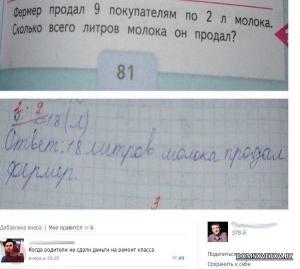 Фермер продал 9 покупателям по 2 л молока.
Сколько всего литров молока он продал?
81
2·9=18(л)
Ответ:18 литров молока продал
фермер.
Добавлена вчера | Мне нравится 6
Когда родители не сдали деньги на ремонт класса
вчера в 19:18
49
Поделиться
Сохранить к себе